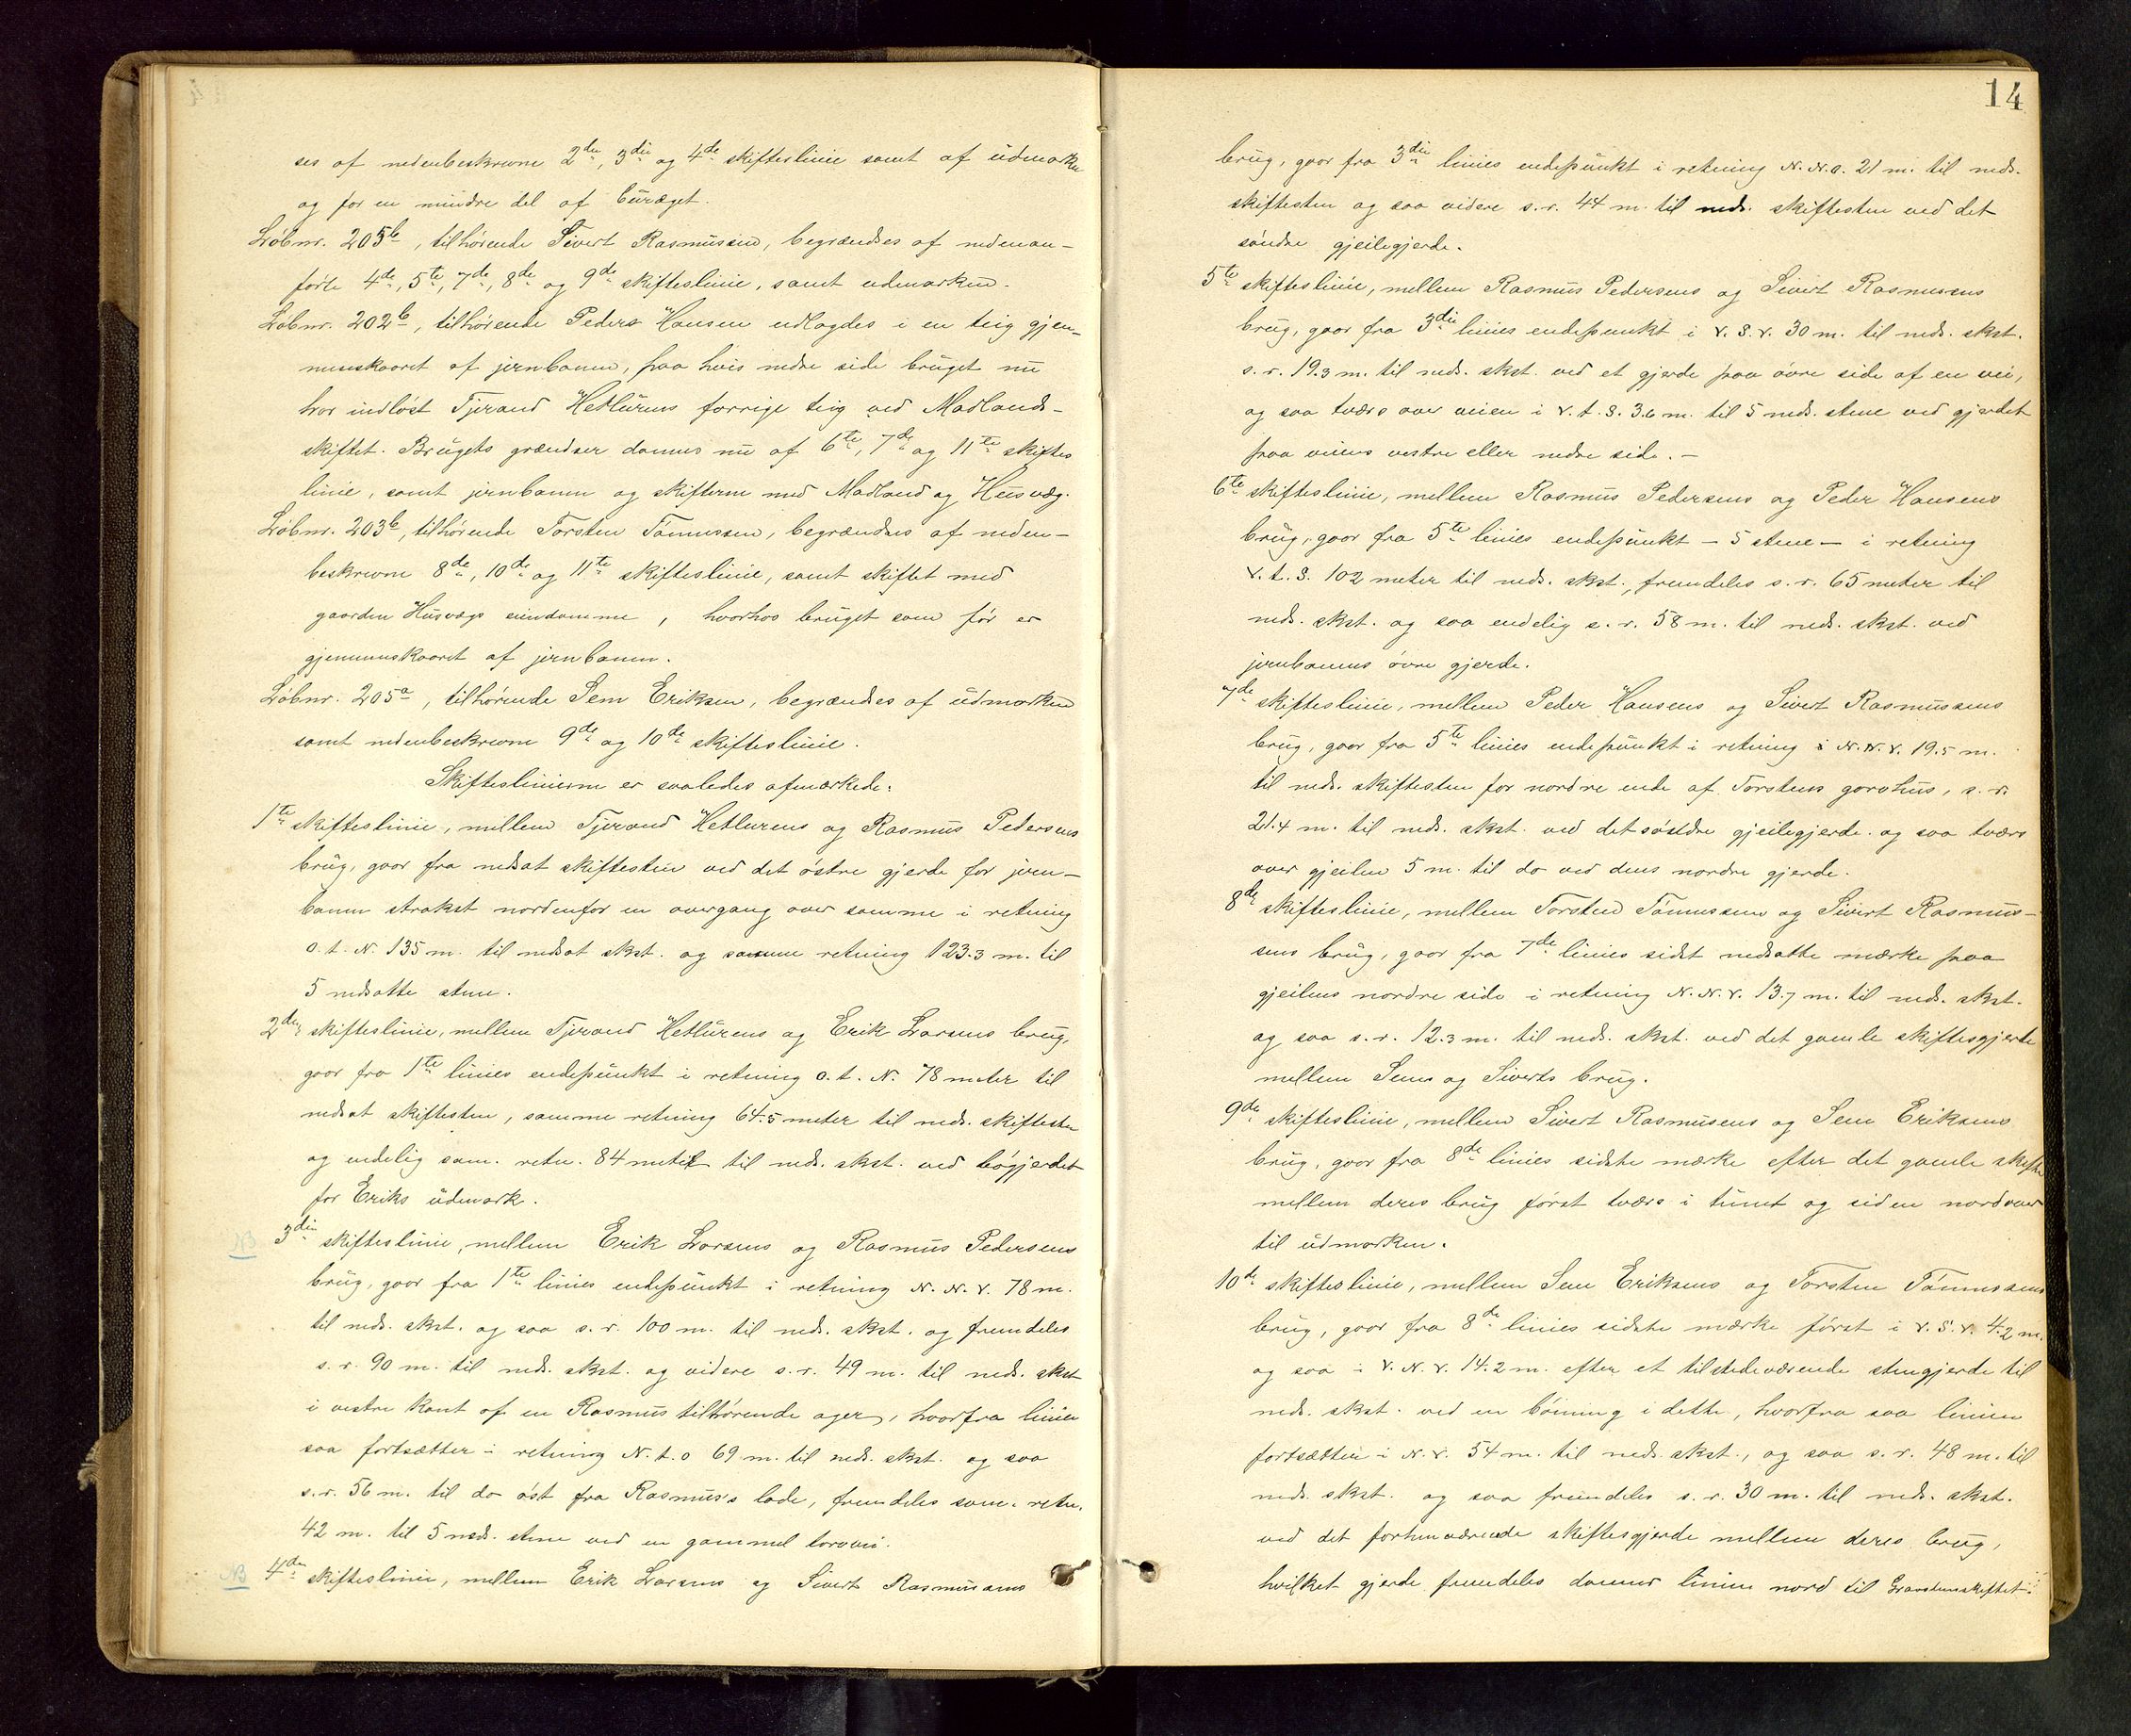 ses af nedenbeskrevne 2den, 3die og 4de skifteslinie samt af udmarken
og for en mindre del af buræget.
Löbnr. 205b, tilhörende Sivert Rasmussen, begrændses af nedenan-
förte 4de, 5te, 7de, 8de og 9de skifteslinie, samt udmarken.
Löbnr. 202b, tilhörende Peder Hansen udlagdes i en teig gjen-
nemskaaret af jernbanen, paa hvis nedre side bruget nu
har indlöst Tjerand Hetlurens forrige teig ved Madlands-
skiftet. Brugets grændser dannes nu af 6te, 7de og 11te skiftes
linie, samt jernbanen og skifterne med Madland og Husvæg.
Löbnr. 203b, tilhörende Torsten Tönnessen, begrændses af neden-
beskrevne 8de, 10de og 11te skifteslinie, samt skiftet med
gaarden Husvægs eiendomme, hvorhos bruget som för er
gjennemskaaret af jernbanen.
Löbnr. 205a, tilhörende Sem Eriksen, begrændses af udmarken
samt nedenbeskrevne 9de og 10de skifteslinie.
Skifteslinierne er saaledes afmærkede:
1te skifteslinie, mellem Tjerand Hetlurens og Rasmus Pedersens
brug, gaar fra nedsat skiftesten ved det östre gjerde for jern-
banen strakst nordenfor en overgang over samme i retning
o. t. N. 135 m. til nedsat skst. og samme retning 123.3 m. til
5 nedsatte stene.
2den skifteslinie, mellem Tjerand Hetlurens og Erik Larsens brug,
gaar fra 1te linies endepunkt i retning o. t. N. 78 meter til
nedsat skiftesten, samme retning 64.5 meter til neds. skiftesten
og endelig sam. retn. 84 meter til neds. skst. ved bögjerdet
for Eriks udmark.
NB 3die skifteslinie, mellem Erik Larsens og Rasmus Pedersens
brug, gaar fra 1te linies endepunkt i retning N. N. V. 78 m.
til neds. skst. og saa s. r. 100 m. til neds. skst. og fremdeles
s. r. 90 m. til neds. skst. og videre s. r. 49 m. til neds. skst
i vestre kant af en Rasmus tilhörende ager, hvorfra linien
saa fortsætter i retning N. t. o 69 m. til neds. skst. og saa
s. r. 56 m. til do öst fra Rasmus's lade, fremdeles sam. retn.
42 m. til 5 neds. stene ved en gammel torvvei.
NB 4de skifteslinie, mellem Erik Larsens og Sivert Rasmussens
14
brug, gaar fra 3die linies endepunkt i retning N. N. o. 21 m. til neds.
skiftesten og saa videre s. r. 44 m. til neds. skiftesten ved det
söndre gjeilegjerde.
5te skifteslinie, mellem Rasmus Pedersens og Sivert Rasmussens
brug, gaar fra 3die linies endepunkt i V. S. V. 30 m. til neds. skst.
s. r. 19.3 m. til neds. skst. ved et gjerde paa övre side af en vei,
og saa tværs over veien i V. t. S. 3.6 m. til 5 neds. stene ved gjerdet
paa veiens vestre eller nedre side. -
6te skifteslinie, mellem Rasmus Pedersens og Peder Hansens
brug, gaar fra 5te linies endepunkt - 5 stene - i retning
V. t. S. 102 meter til neds. skst., fremdeles s. r. 65 meter til
neds. skst. og saa endelig s. r. 58 m. til neds. skst. ved
jernbanens övre gjerde.
7de skifteslinie, mellem Peder Hansens og Sivert Rasmussens
brug, gaar fra 5te linies endepunkt i retning i N. N. V. 19.5 m.
til neds. skiftesten for nordre ende af Torstens gorohus, s. r.
21.4 m. til neds. skst. ved det söndre gjeilegjerde og saa tværs
over gjeilen 5 m. til do ved dens nordre gjerde.
8de skifteslinie, mellem Torsten Tönnessens og Sivert Rasmus-
sens brug, gaar fra 7de linies sidst nedsatte mærke paa
gjeilens nordre side i retning N. N. V. 13.7 m. til neds. skst.
og saa s. r. 12.3 m. til neds. skst. ved det gamle skiftesgjerde
mellem Sems og Siverts brug.
9de skifteslinie, mellem Sivert Rasmussens og Sem Eriksens
brug, gaar fra 8de linies sidste mærke efter det gamle skifte
mellem deres brug först tværs i tunet og siden nordover
til udmarken.
10de skifteslinie, mellem Sem Eriksens og Torsten Tönnessens
brug, gaar fra 8de linies sidste mærke först i V. S. V. 4.2 m.
og saa i V. N. V. 14.2 m. efter et tilstedeværende stengjerde til
neds. skst. ved en böining i dette, hvorfra saa linien
fortsætter i N. V. 54 m. til neds. skst., og saa s. r. 48 m. til
neds. skst. og saa fremdeles s. r. 30 m. til neds. skst.
ved det forhenværende skiftesgjerde mellem deres brug,
hvilket gjerde fremdeles danner linien nord til Gravdensskiftet.